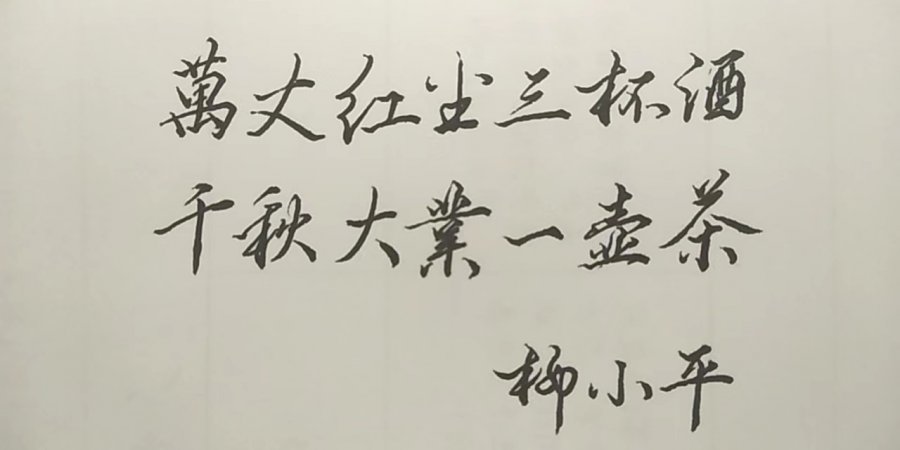 萬丈红尘三杯酒
千秋大業一壶茶
柳小平